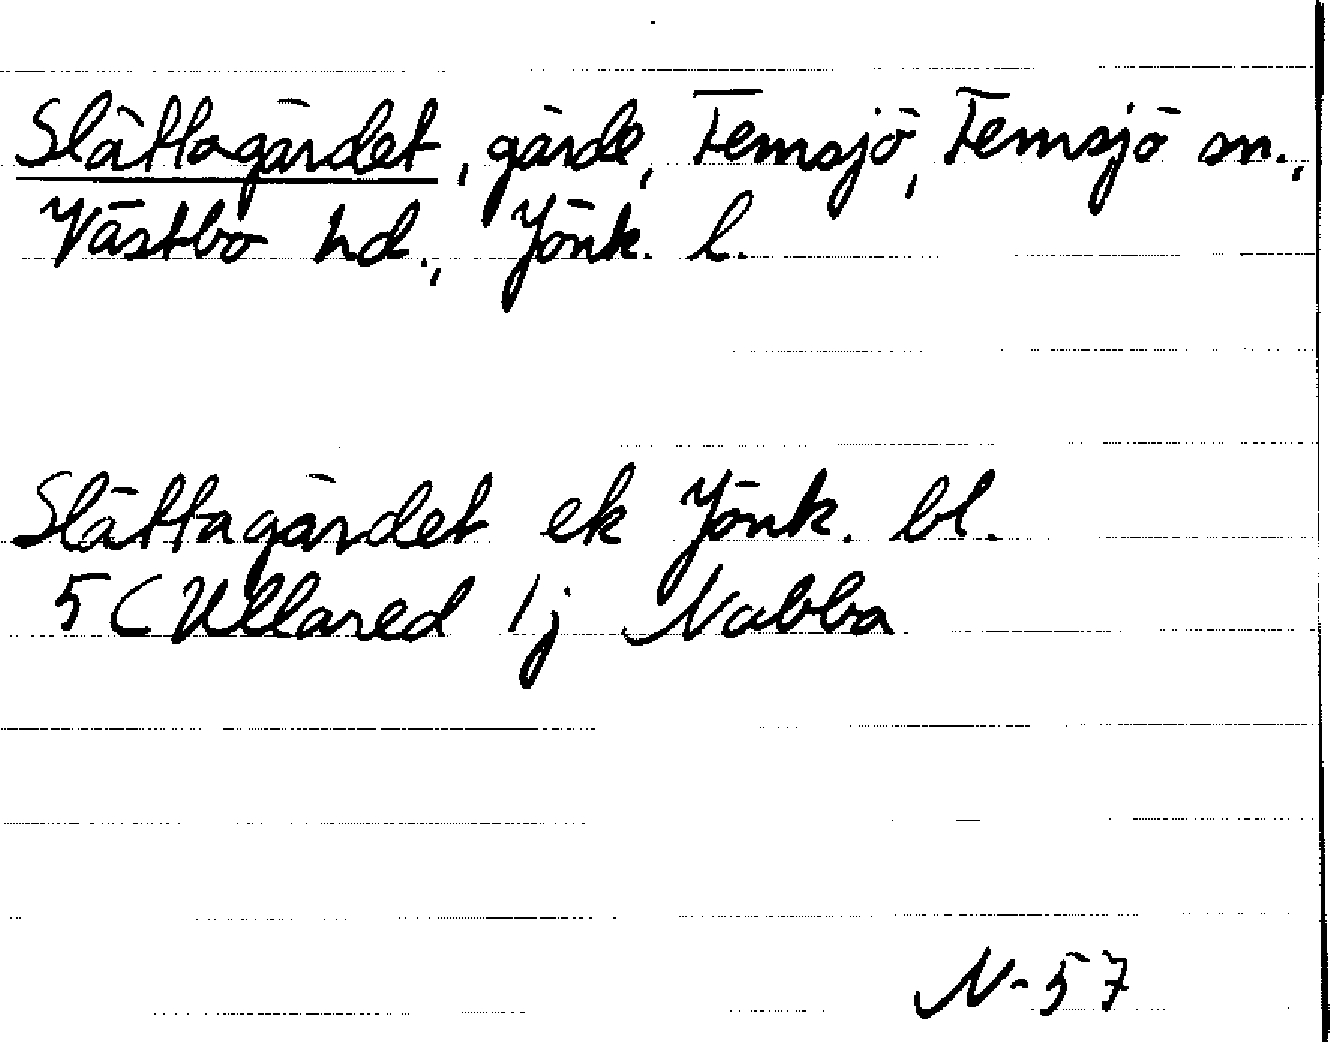 Slättagärdet, gärde, Femsjö, Femsjö sn.,
Västbo hd., Jönk. l.
Slättagärdet ek Jönk. bl.
5 (Ullared 1j Nabba
N-57